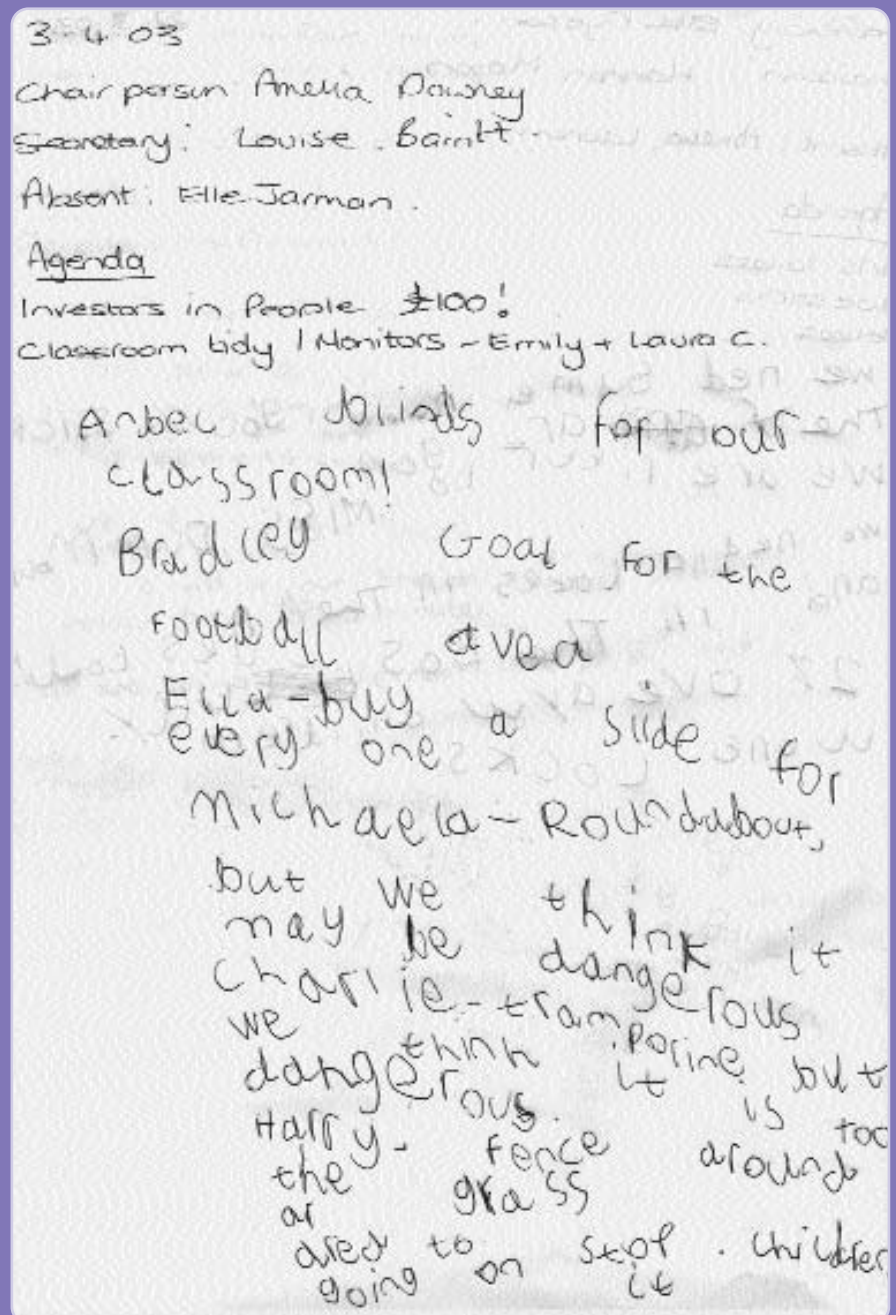 3-4-03
Chairperson Amelia Downey
Secretary: Louise Barritt
Absent: Elle Jarman.
Agenda
Investors in People £100!
Classroom tidy / Monitors - Emily + Laura C.
blinds for our
classroom!
Bradley Goal for the
football avea
Ella-buy a slide for
every one
Michaela - Roundabout,
but we think it
may be dangerous
Charlie-tramporine but
we thinh it is too
dangerous.
Harry- fence around
the grass
ar
area to stop children
going on it